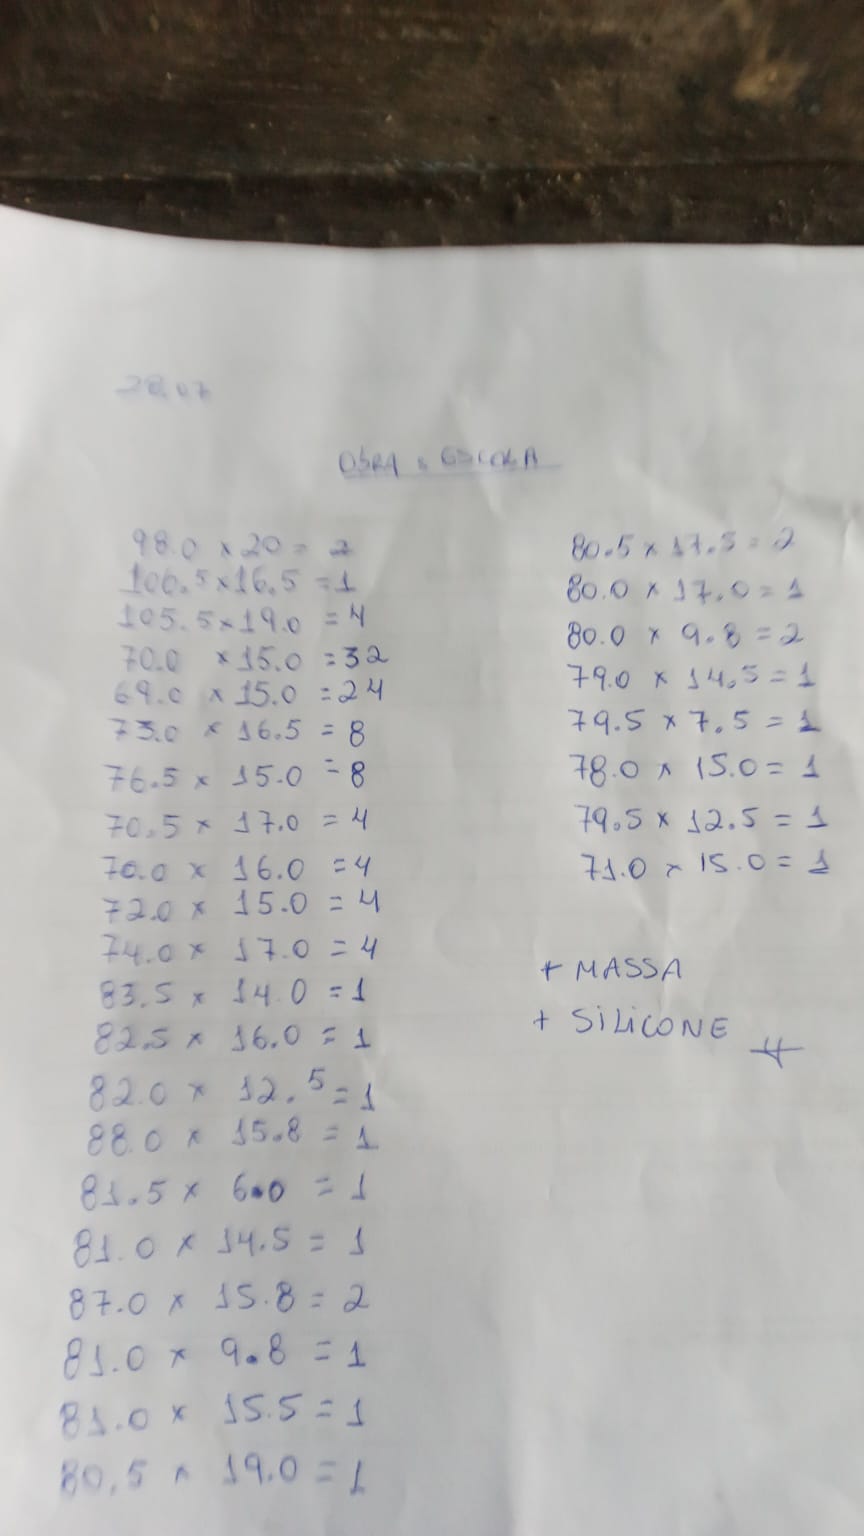 28.07
OBRA : ESCOLA
98.0 x 20 = 2
106.5 x 16.5 = 1
105.5 x 19.0 = 4
70.0 x 15.0 = 32
69.0 x 15.0 = 24
73.0 x 16.5 = 8
76.5 x 15.0 = 8
70.5 x 17.0 = 4
70.0 x 16.0 = 4
72.0 x 15.0 = 4
74.0 x 17.0 = 4
83.5 x 14.0 = 1
82.5 x 16.0 = 1
82.0 x 12.5 = 1
88.0 x 15.8 = 1
81.5 x 6.0 = 1
81.0 x 14.5 = 1
87.0 x 15.8 = 2
81.0 x 9.8 = 1
81.0 x 15.5 = 1
80,5 x 19.0 = 1
80.5 x 17.5 = 2
80.0 x 17.0 = 1
80.0 x 9.8 = 2
79.0 x 14,5 = 1
79.5 x 7.5 = 1
78.0 x 15.0 = 1
79.5 x 12.5 = 1
71.0 x 15.0 = 1
+ MASSA
+ SILICONE